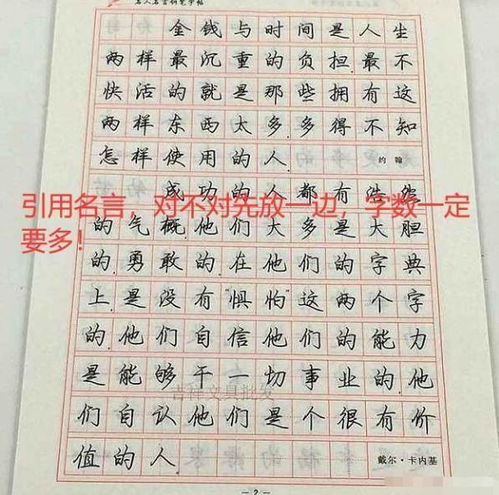 名人名言钢笔字帖
金钱与时间是人生
两样最沉重的负担.最不
快活的就是那些拥有这
两样东西太多.多得不知
怎样使用的人.
约翰
成功的人.都有浩然
引用名言，对不对先放一边，字数一定
要多！
的气概.他们大多是大胆
的.勇敢的.在他们的字典
上.是没有"惧怕"这两个字
的.他们自信他们的能力
是能够干一切事业的.他
们自认他们是个很有价
值的人.
戴尔·卡内基
－2－